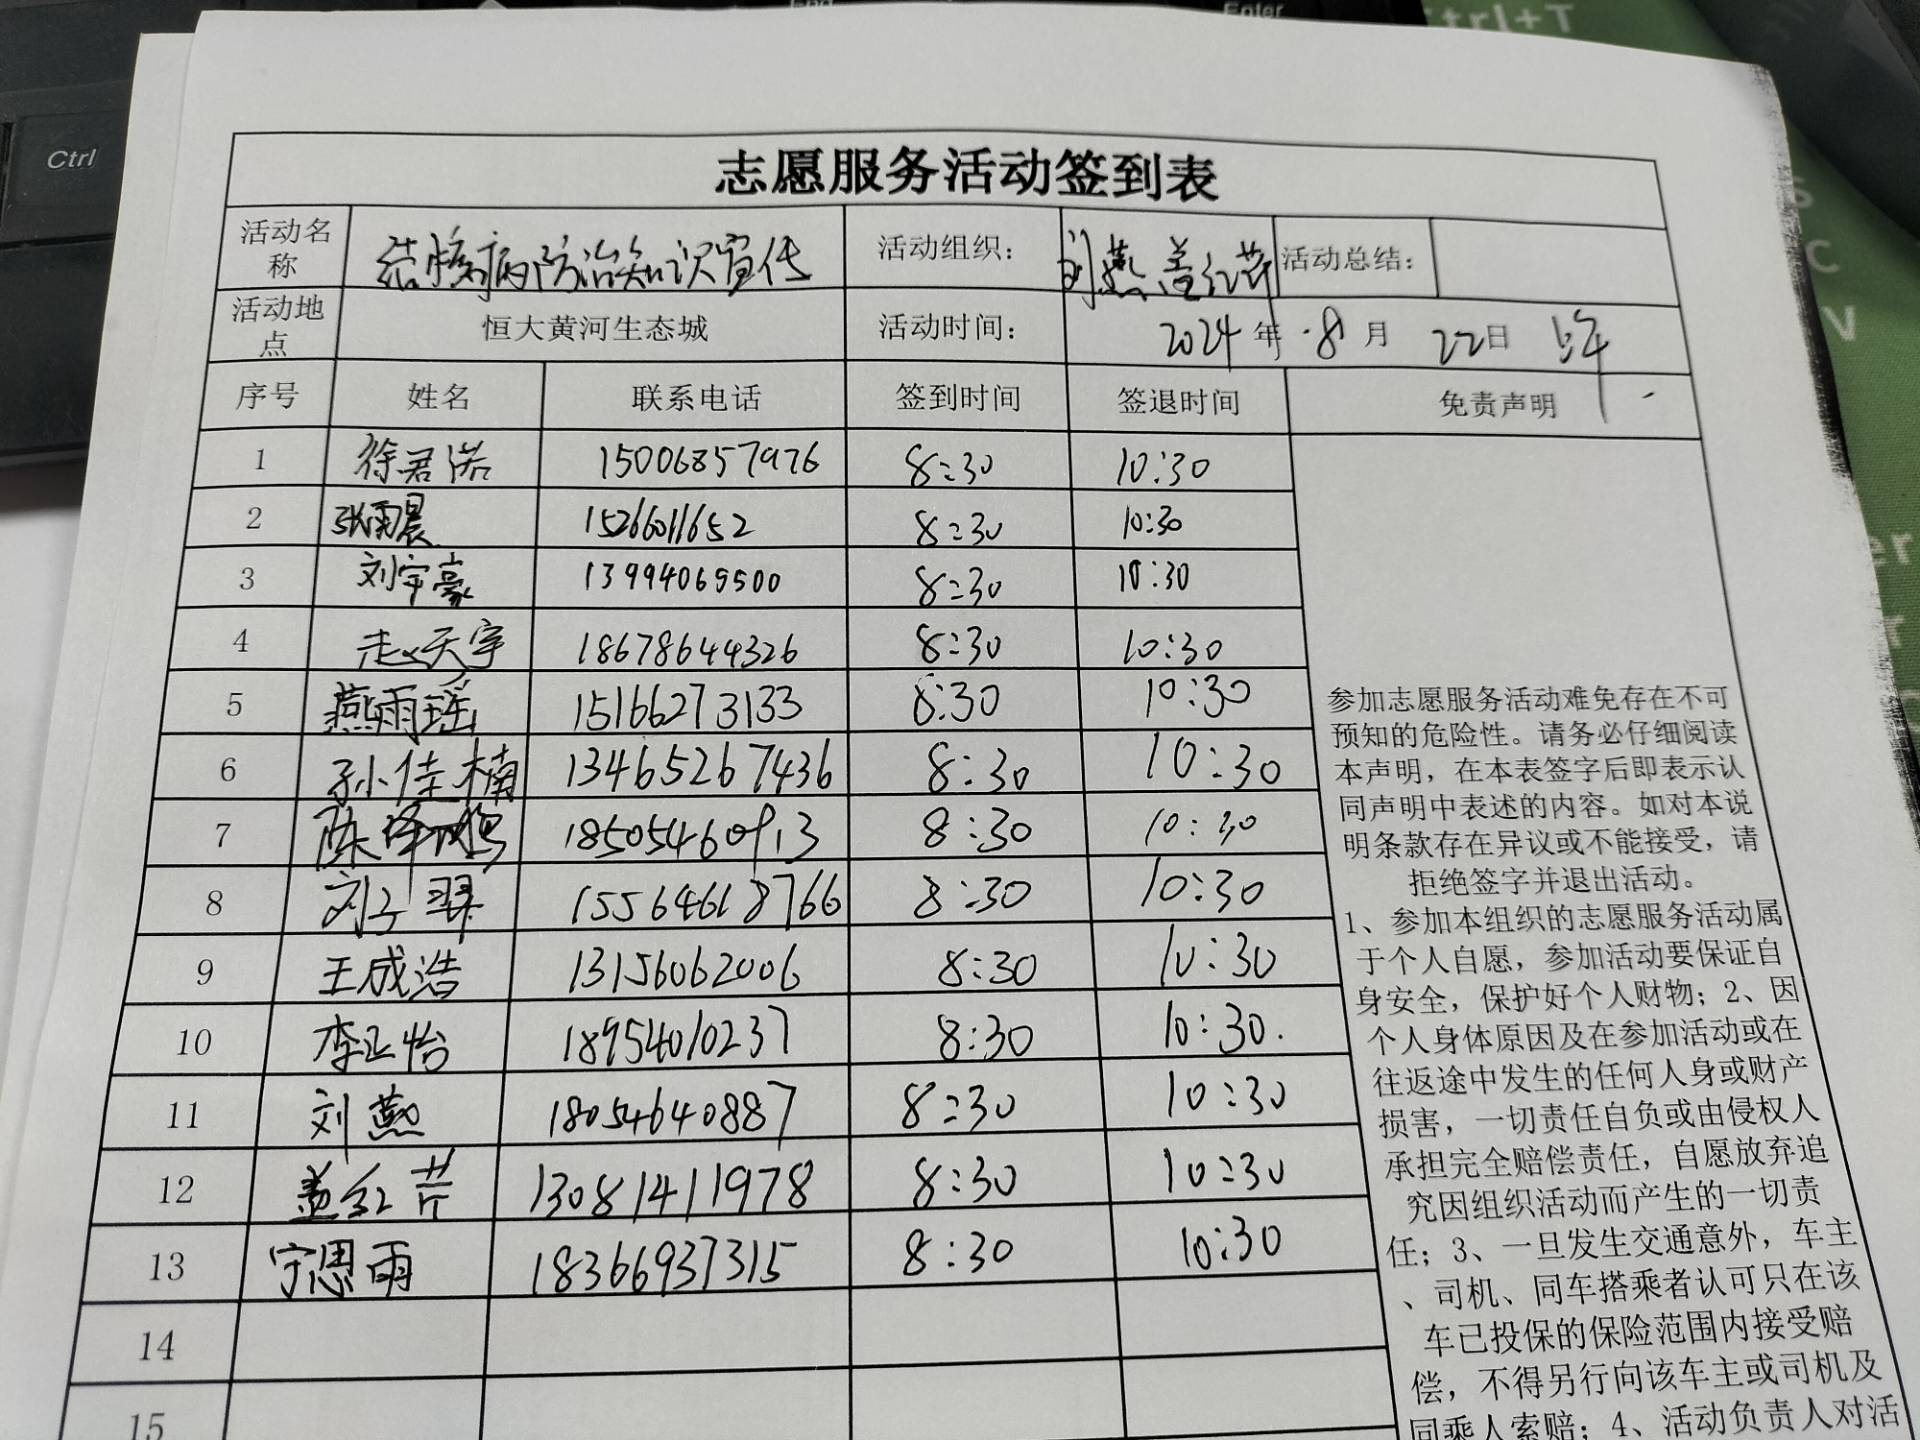 End
Enter
Ctrl+T
Ctrl
S
C
V
志愿服务活动签到表
活动名称 结核病防治知识宣传 活动组织： 刘燕 盖红芹 活动总结：
活动地点 恒大黄河生态城 活动时间： 2024年 8月 22日 上午
序号 姓名 联系电话 签到时间 签退时间 免责声明
1 徐君诺 15006857976 8:30 10:30
2 张雨晨 15266011652 8:30 10:30
3 刘宇豪 13994069500 8:30 10:30
4 赵天宇 18678644326 8:30 10:30
5 燕雨瑶 15166273133 8:30 10:30
6 孙佳楠 13465267436 8:30 10:30
7 陈泽 18505460913 8:30 10:30
8 刘子 15564618766 8:30 10:30
9 王成浩 13156062006 8:30 10:30
10 李正怡 18954010237 8:30 10:30.
11 刘燕 18054640887 8:30 10:30
12 盖红芹 13081411978 8:30 10:30
13 宁思雨 18366937315 8:30 10:30
14
15
参加志愿服务活动难免存在不可
预知的危险性。请务必仔细阅读
本声明，在本表签字后即表示认
同声明中表述的内容。如对本说
明条款存在异议或不能接受，请
拒绝签字并退出活动。
1、参加本组织的志愿服务活动属
于个人自愿，参加活动要保证自
身安全，保护好个人财物；2、因
个人身体原因及在参加活动或在
往返途中发生的任何人身或财产
损害，一切责任自负或由侵权人
承担完全赔偿责任，自愿放弃追
究因组织活动而产生的一切责
任；3、一旦发生交通意外，车主
、司机、同车搭乘者认可只在该
车已投保的保险范围内接受赔
偿，不得另行向该车主或司机及
同乘人索赔；4、活动负责人对活